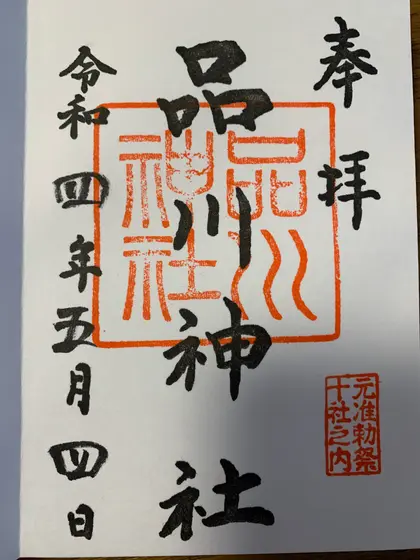 奉拝
品川神社
品川神社
元准勅祭
十社之内
令和四年五月四日